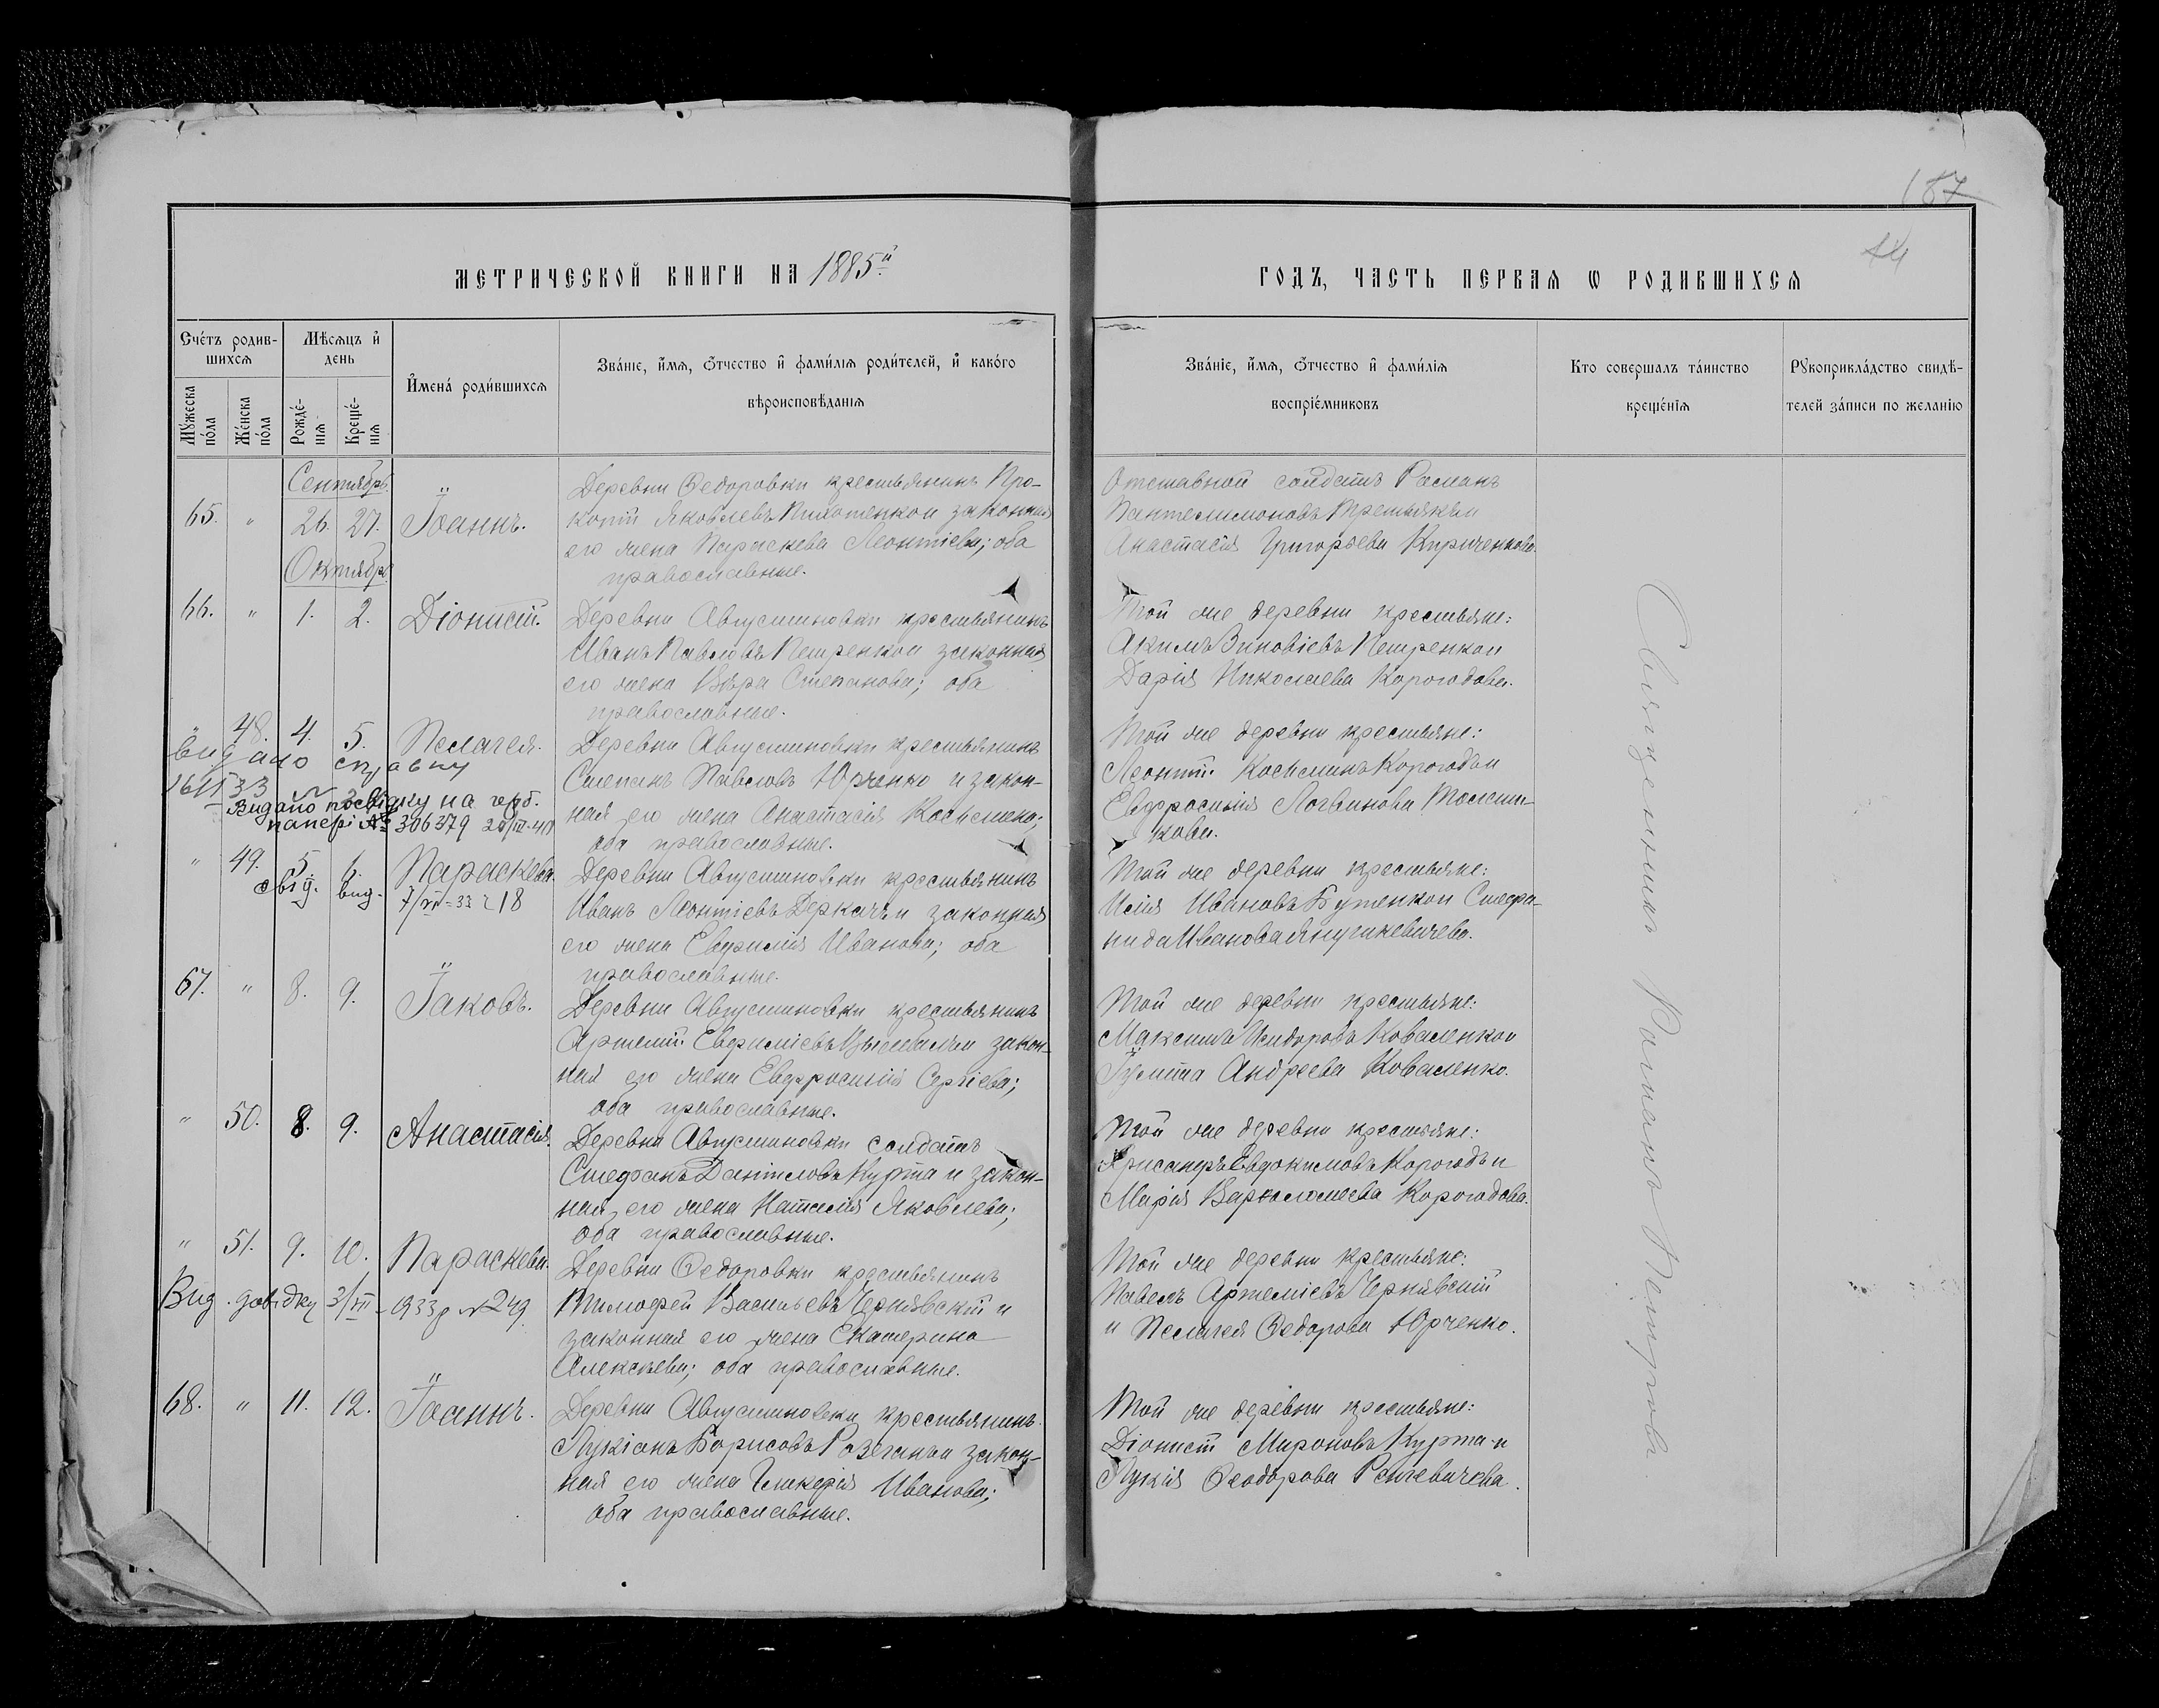 187
44
МЕТРИЧЕСКОЙ КНИГИ НА 1885й
ГОДЪ, ЧАСТЬ ПЕРВАЯ Ѡ РОДИВШИХСЯ
Счетъ родив-
шихся
Мѣсяцъ и
день
Мужеска
пола
Женска
пола
Рожде-
нія
Креще-
нія
Имена родившихся
Званіе, имя, отчество и фамилія родителей, и какого
вѣроисповѣданія
Званіе, имя, отчество и фамилія
воспріемниковъ
Кто совершалъ таинство
крещенія
Рукоприкладство свидѣ-
телей записи по желанію
Сентябрь.
65. " 26. 27. Іоаннъ.
Деревни Федоровки крестьянинъ Про-
копій Яковлевъ и законная
его жена Параскева Леонтіева; оба
православные.
Отставной солдатъ Романъ
Пантелимоновъ Третьякъ и
Анастасія Григорьева Кириченкова.
Октябрь.
66. " 1. 2. Діонисій.
Деревни Августиновки крестьянинъ
Иванъ Павловъ Петренко и законная
его жена Вѣра Степанова; оба
православные.
Той же деревни крестьяне:
Акимъ Зиновіевъ Петренко и
Дарія Николаева Корогодова.
" 48. 4. 5. Пелагея.
Видано справку
16/I 33
Видано посвідку на герб.
папері № 306379
Деревни Августиновки крестьянинъ
Степанъ Павловъ Юрченко и закон-
ная его жена Анастасія Косьмина;
оба православные.
Той же деревни крестьяне:
Леонтій Косьминъ Корогодъ и
Евфросинія Логвинова
кова.
" 49. 5. 6. Параскева.
свід. вид. 7/VII-33 18
Деревни Августиновки крестьянинъ
Иванъ Леонтіевъ Деркачъ и законная
его жена Евфимія Иванова; оба
православные.
Той же деревни крестьяне:
Илія Ивановъ Бутенко и Стефа-
нида Иванова Янушкевичева.
67. " 8. 9. Іаковъ.
Деревни Августиновки крестьянинъ
Артемій Евфиміевъ и закон-
ная его жена Евфросинія Сергіева;
оба православные.
Той же деревни крестьяне:
Максимъ Исидоровъ Коваленко и
Іулитта Андреева Коваленко.
" 50. 8. 9. Анастасія.
Деревни Августиновки солдатъ
Стефанъ Даніиловъ Курта и закон-
ная его жена Наталія Яковлева;
оба православные.
Той же деревни крестьяне:
Хрисанфъ Евдокимовъ Корогодъ и
Марія Варфоломеева Корогодова.
" 51. 9. 10. Параскева.
Вид. довідку 3/VII-1933р №249.
Деревни Федоровки крестьянинъ
Тимофей Васильевъ Чернявскій и
законная его жена Екатерина
Алексѣева; оба православные.
Той же деревни крестьяне:
Павелъ Артеміевъ Чернявскій
и Пелагея Федорова Юрченко.
68. " 11. 12. Іоаннъ.
Деревни Августиновки крестьянинъ
Лукіанъ Борисовъ и закон-
ная его жена Гликерія Иванова;
оба православные.
Той же деревни крестьяне:
Діонисій Мироновъ Курта и
Лукія Феодорова
Священникъ Романъ Петровъ